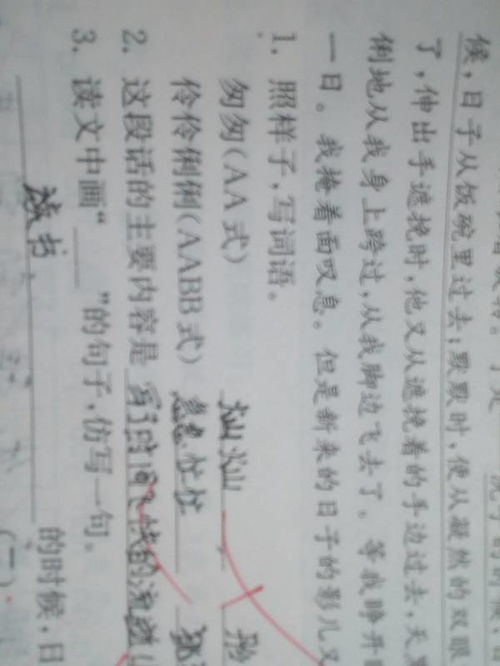 候，日子从饭碗里过去；默默时，便从凝然的双眼
了，伸出手遮挽时，他又从遮挽着的手边过去，天
俐地从我身上跨过，从我脚边飞去了。等我睁开
一日。我掩着面叹息。但是新来的日子的影儿又
1. 照样子，写词语。
匆匆(AA式) 灿灿
伶伶俐俐(AABB式) 急急忙忙
2. 这段话的主要内容是 写了时间飞快的流逝
3. 读文中画“____”的句子，仿写一句。
读书 的时候，日
(二)